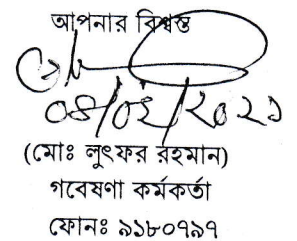 আপনার বিশ্বস্ত
০৪/০২/২০২১
(মোঃ লুৎফর রহমান)
গবেষণা কর্মকর্তা
ফোনঃ ৯১৮০৭৯৭